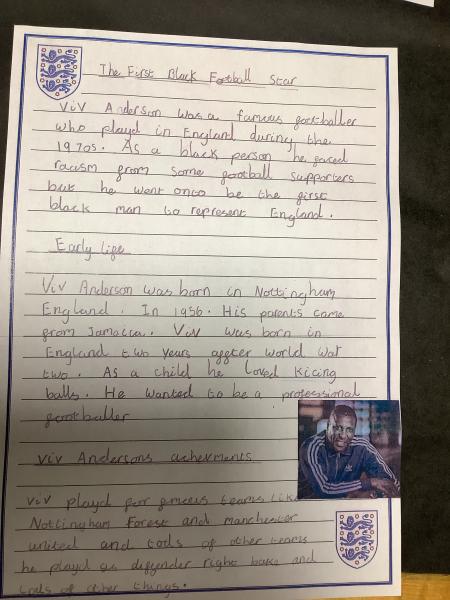 The First Black Football Star
Viv Anderson was a famous footballer
who playd in England during the
1970s. As a black person he faced
racism from some football supporters
but he went onto be the first
black man to represent England.
Early life
Viv Anderson was born in Nottingham
England. In 1956. His parents came
from Jamacca. Viv was born in
England two years aggter world wat
two. As a child he loved kicing
balls. He wanted to be a professional
footballer
Viv Andersons achevments
Viv playd for fmeus teams like
Nottingham Forest and manchester
united and tods of other teams
he playd as deffender right bake and
tods of other things.